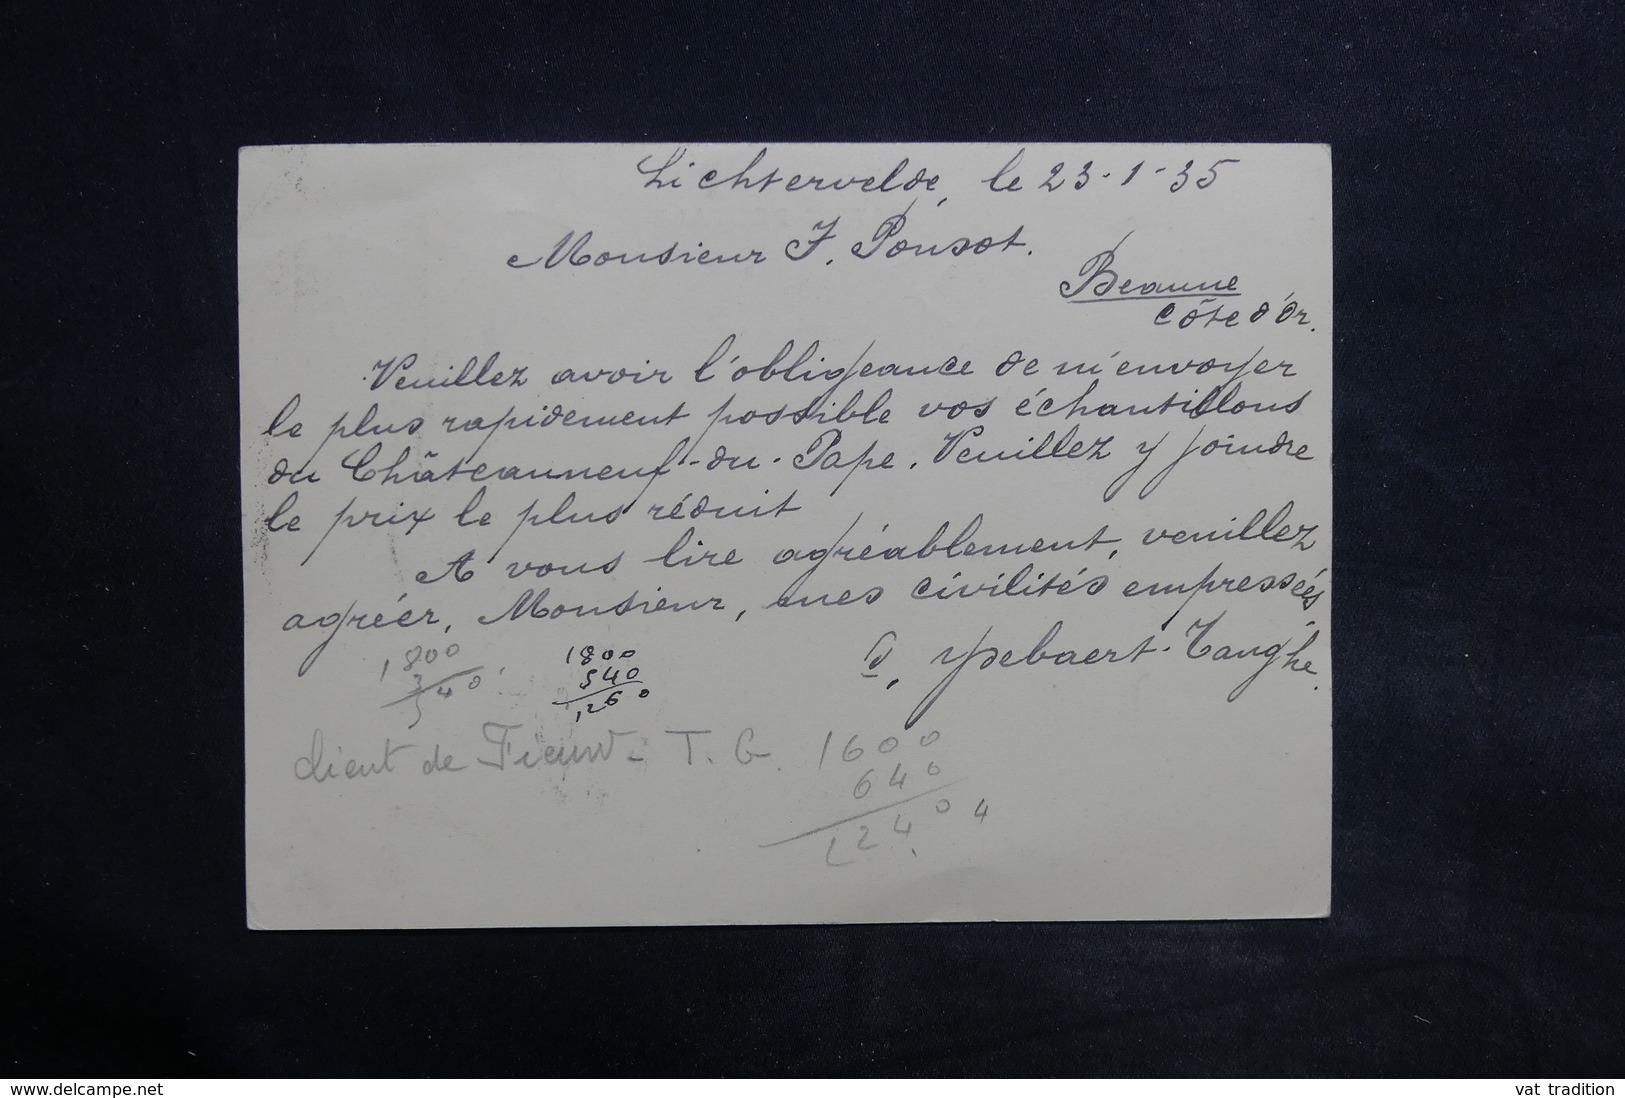 Lichtervelde, le 23-1-35
Monsieur F. Ponsot.
Beaune
Côte d'Or.
Veuillez avoir l'obligeance de m'envoyer
le plus rapidement possible vos échantillons
du Châteauneuf-du-Pape. Veuillez y joindre
le prix le plus réduit
A vous lire agréablement, veuillez
agréer, Monsieur, mes civilités empressées
Ypebaert-Tanghe.
1800
540
1800
540
1260
client de T. G.
1600
640
1240 4
www.delcampe.net
vat tradition